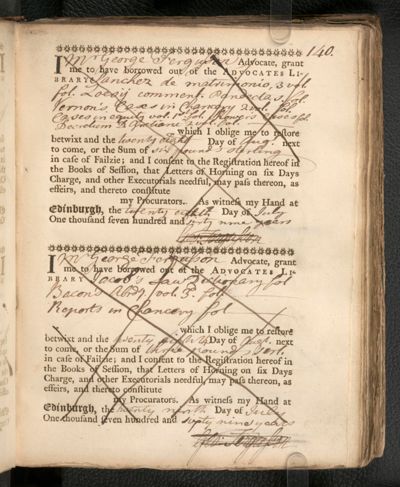 140.
I Mr George Ferguson Advocate, grant
me to have borrowed out of the ADVOCATES LI-
BRARY Sanchez de matrimonio, 3 vol.
fol.
Vernon's Cases in Chancery 2 vol. fol.
Cases in equity vol. 1st fol.
which I oblige me to reſtore
betwixt and the twenty eight Day of Aug. next
to come, or the Sum of six pounds Sterling
in caſe of Failzie; and I conſent to the Regiſtration hereof in
the Books of Seſſion, that Letters of Horning on ſix Days
Charge, and other Executorials needful, may paſs thereon, as
effeirs, and thereto conſtitute
my Procurators. As witneſs my Hand at
Edinburgh, the twenty eighth Day of July
One thouſand ſeven hundred and sixty nine years
I Mr George Ferguson Advocate, grant
me to have borrowed out of the ADVOCATES LI-
BRARY Jacob's Law Dictionary fol
Bacons vol. 5. fol.
Reports in Chancery fol
which I oblige me to reſtore
betwixt and the twenty eighth Day of Aug. next
to come, or the Sum of three pound Sterl.
in caſe of Failzie; and I conſent to the Regiſtration hereof in
the Books of Seſſion, that Letters of Horning on ſix Days
Charge, and other Executorials needful, may paſs thereon, as
effeirs, and thereto conſtitute
my Procurators. As witneſs my Hand at
Edinburgh, the twenty ninth Day of July
One thouſand ſeven hundred and sixty nine years